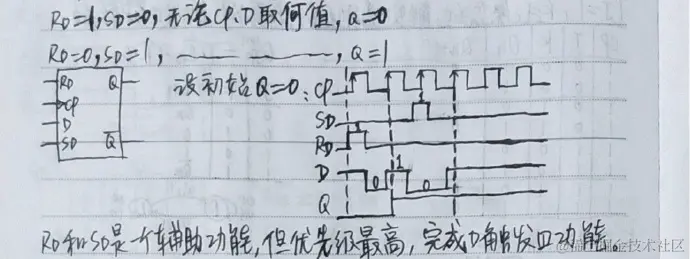 RD=1,SD=0,无论CP、D取何值,Q=0
RD=0,SD=1, — — ——, Q=1
RD Q
CP
D
SD Q̅
设初始Q=0:CP
SD
RD
D 0 1 0
Q
RD和SD是一个辅助功能,但优先级最高,完成D触发器功能。
掘金技术社区